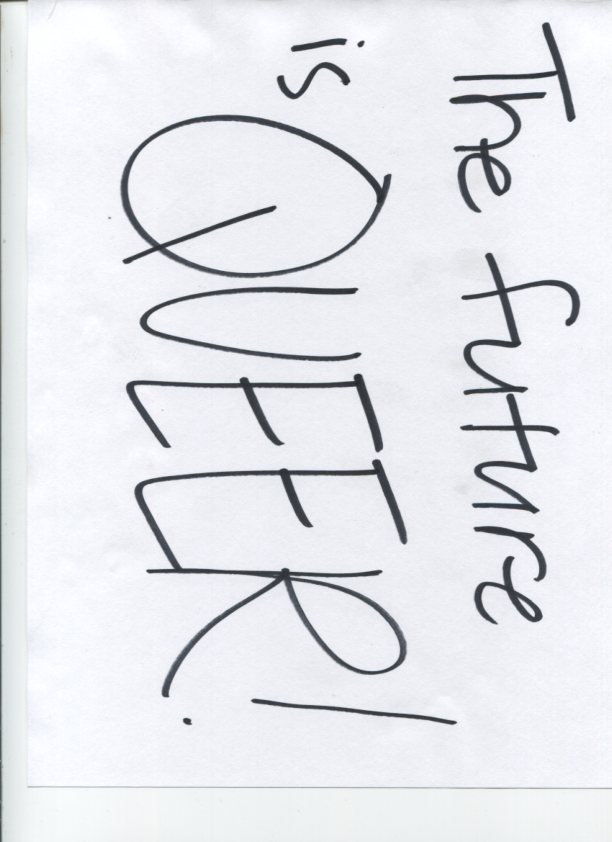 The future
is
QUEER!